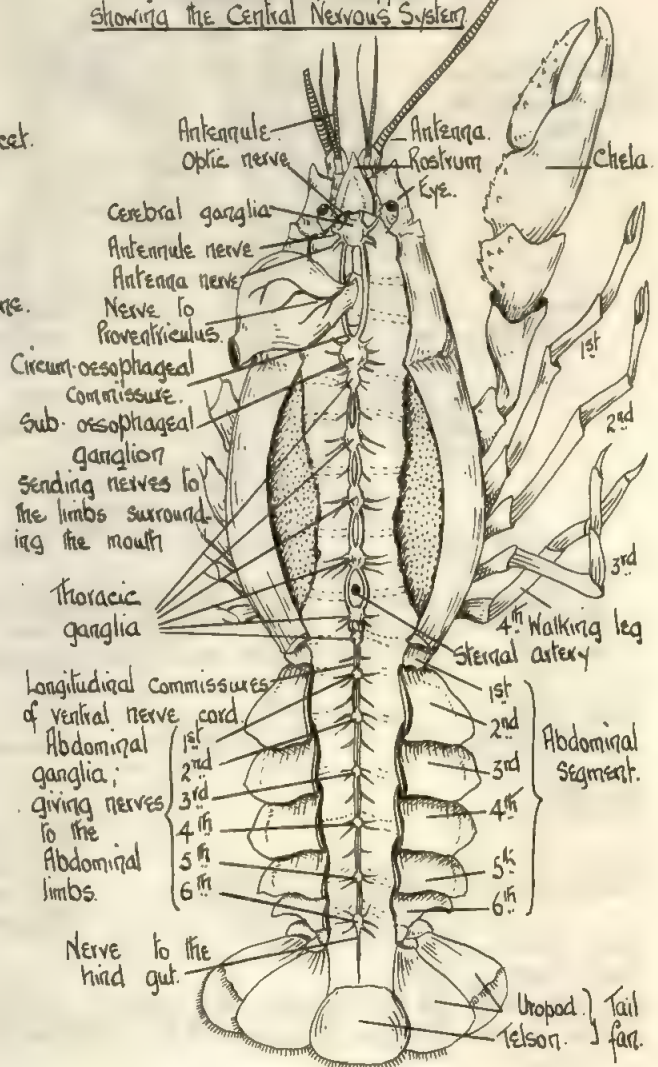 showing the Central Nervous System
Antennule.
Optic nerve
Cerebral ganglia
Antennule nerve
Antenna nerve
Nerve to
Proventriculus.
Circum-oesophageal
Commissure.
Sub-oesophageal
ganglion
sending nerves to
the limbs surround-
ing the mouth
Thoracic
ganglia
Longitudinal Commissures
of ventral nerve cord.
Abdominal
ganglia;
giving nerves
to the
Abdominal
limbs.
1st
2nd
3rd
4th
5th
6th
Nerve to the
hind gut.
Antenna.
Rostrum
Eye.
Chela.
1st
2nd
3rd
4th Walking leg
Sternal artery
1st
2nd
3rd
4th
5th
6th
Abdominal
Segment.
Uropod.
Telson.
Tail
fan.